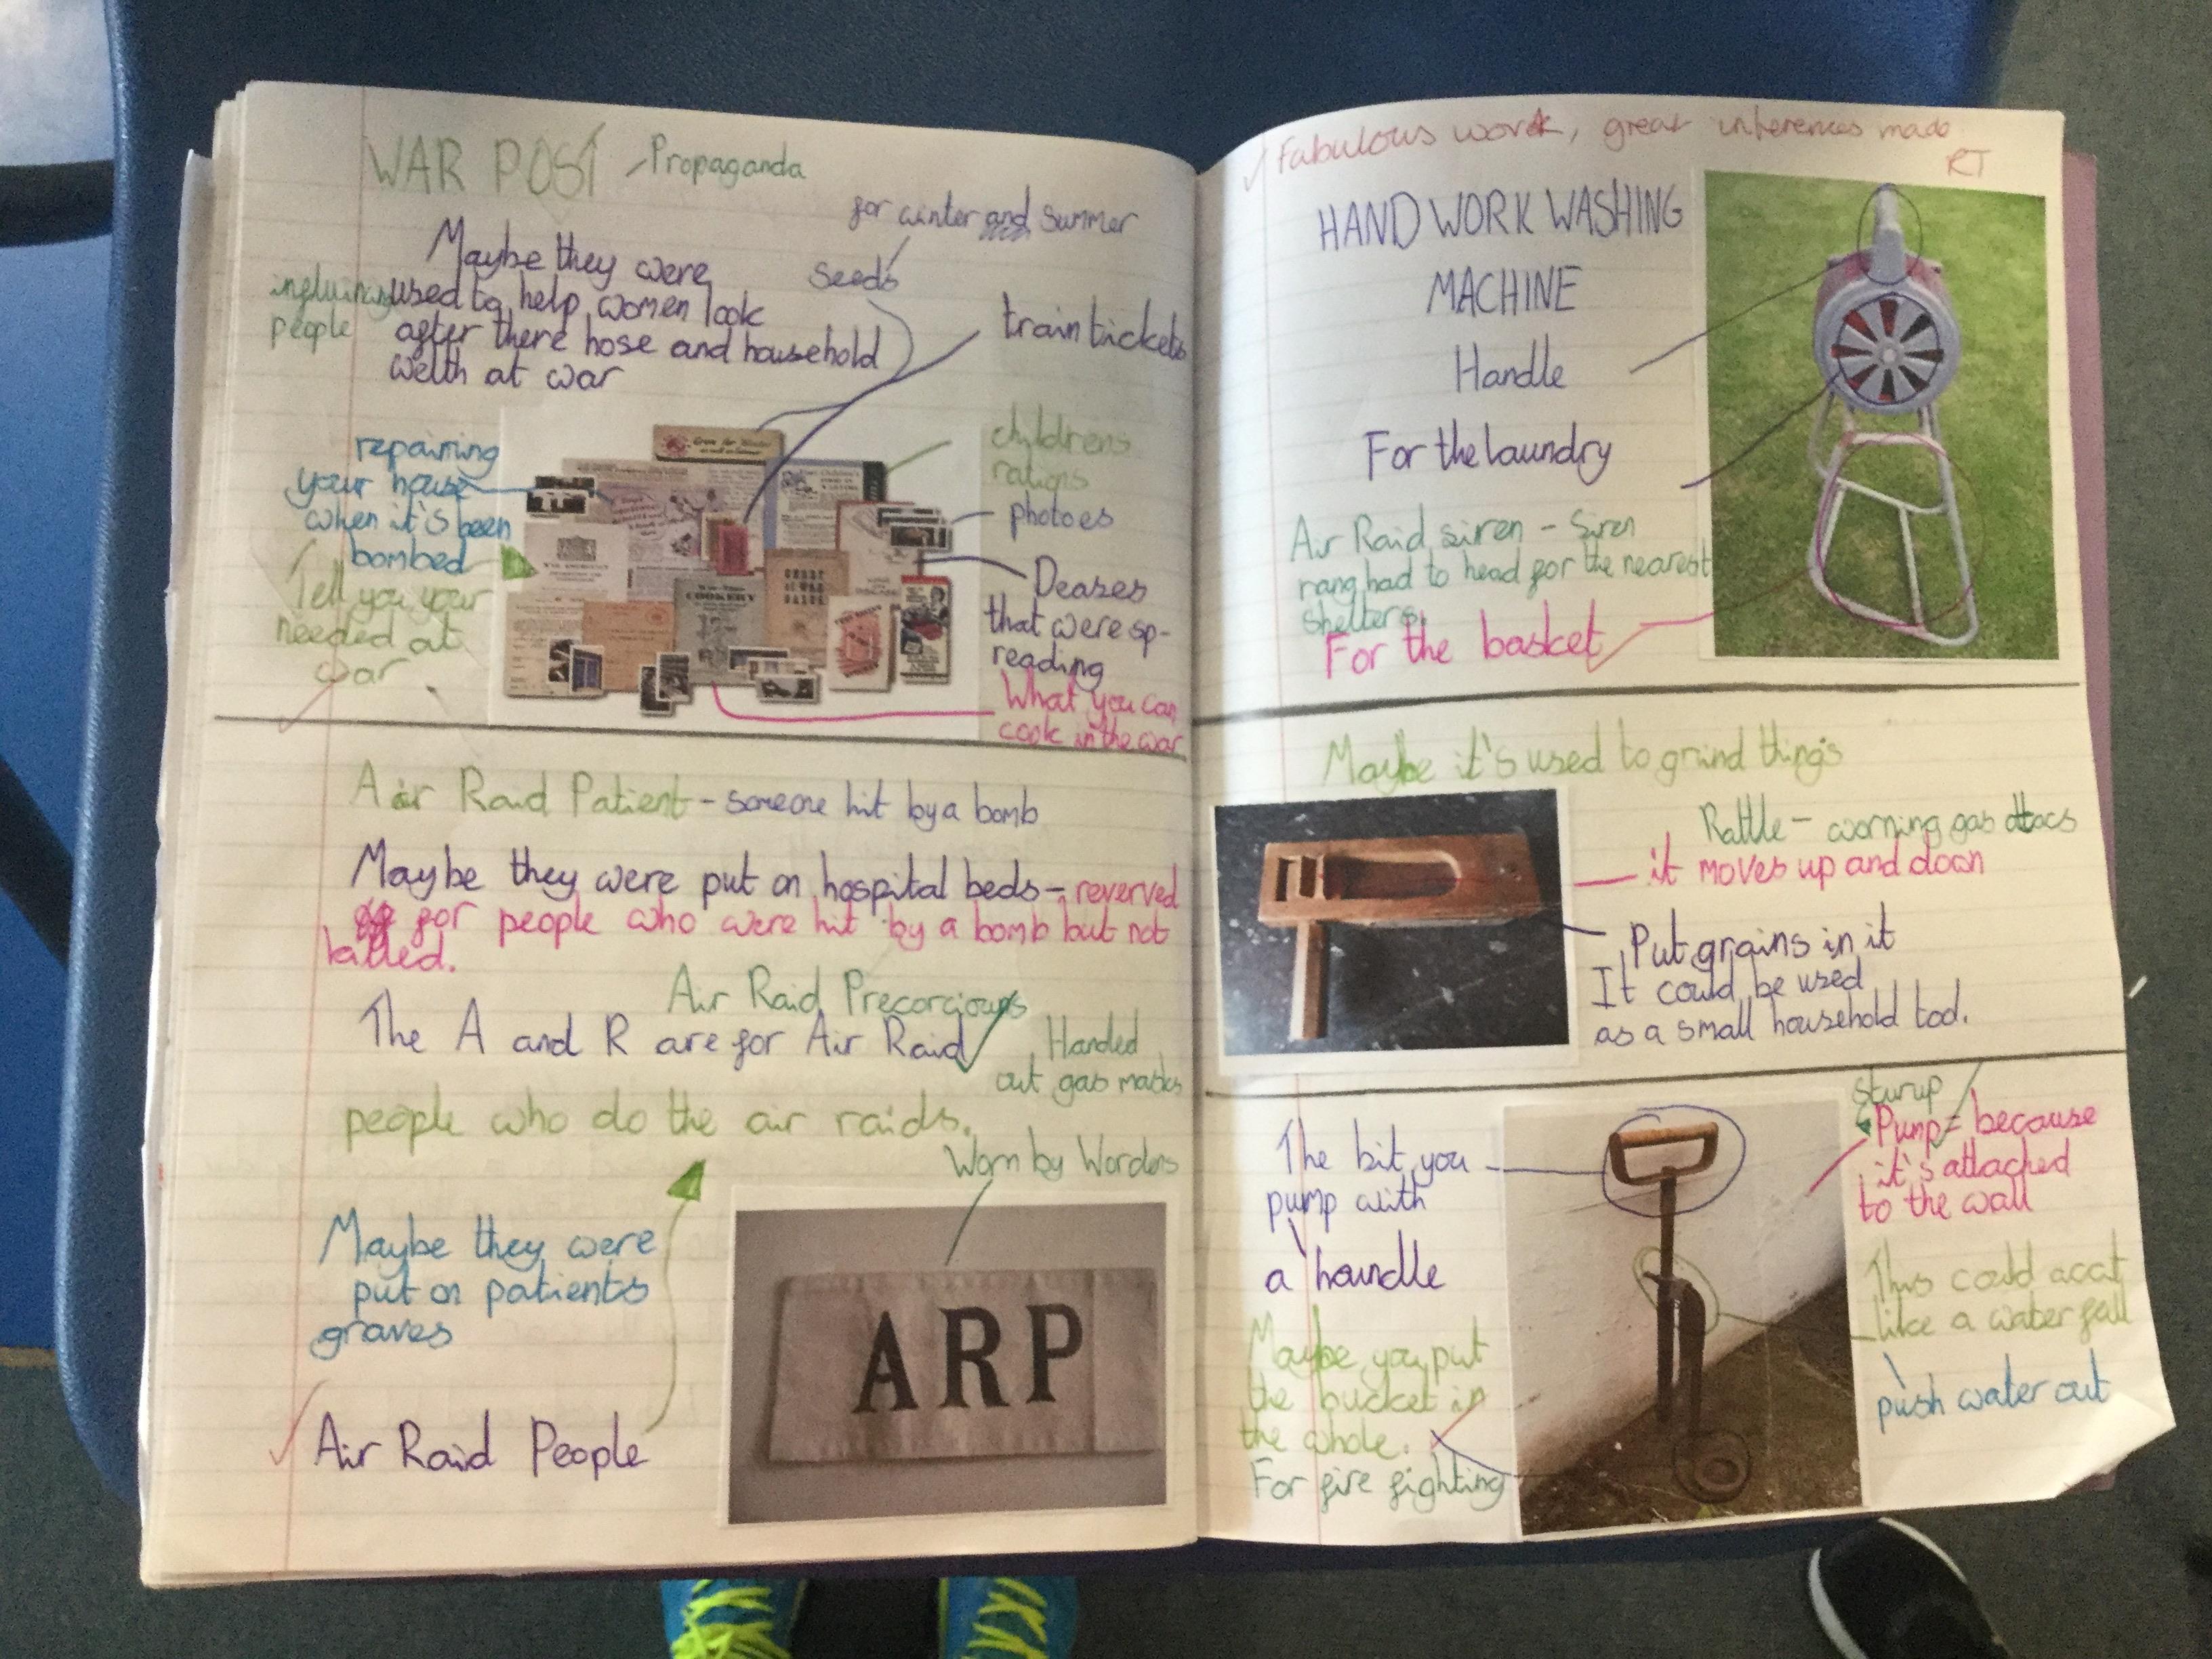 WAR POST - Propaganda
for winter and summer
Seeds
Maybe they were
used to help women look
after there hose and household
welth at war
influincing
people
train trickets
repairing
your house
when it's been
bombed
Tell you your
needed at
war
childrens
rations
photoes
Deases
that were sp-
reading
What you can
cook in the war
COOKERY
Air Raid Patient - someone hit by a bomb
Maybe they were put on hospital beds - reverved
for people who were hit by a bomb but not
killed.
Air Raid Precorciouns
The A and R are for Air Raid
Handed
out gas masks
people who do the air raids.
Worn by Wordens
Maybe they were
put on patients
graves
Air Raid People
ARP
Fabulous work, great inferences made
RT
HAND WORK WASHING
MACHINE
Handle
For the laundry
Air Raid siren - Siren
rang had to head for the nearest
shelters.
For the basket
Maybe it's used to grind things
Rattle - worning gas attacs
it moves up and down
Put grains in it
It could be used
as a small household tool.
sturup
Pump = because
it's attached
to the wall
The bit you
pump with
a handle
This could acct
like a water fall
push water out
Maybe you put
the bucket in
the whole.
For fire fighting